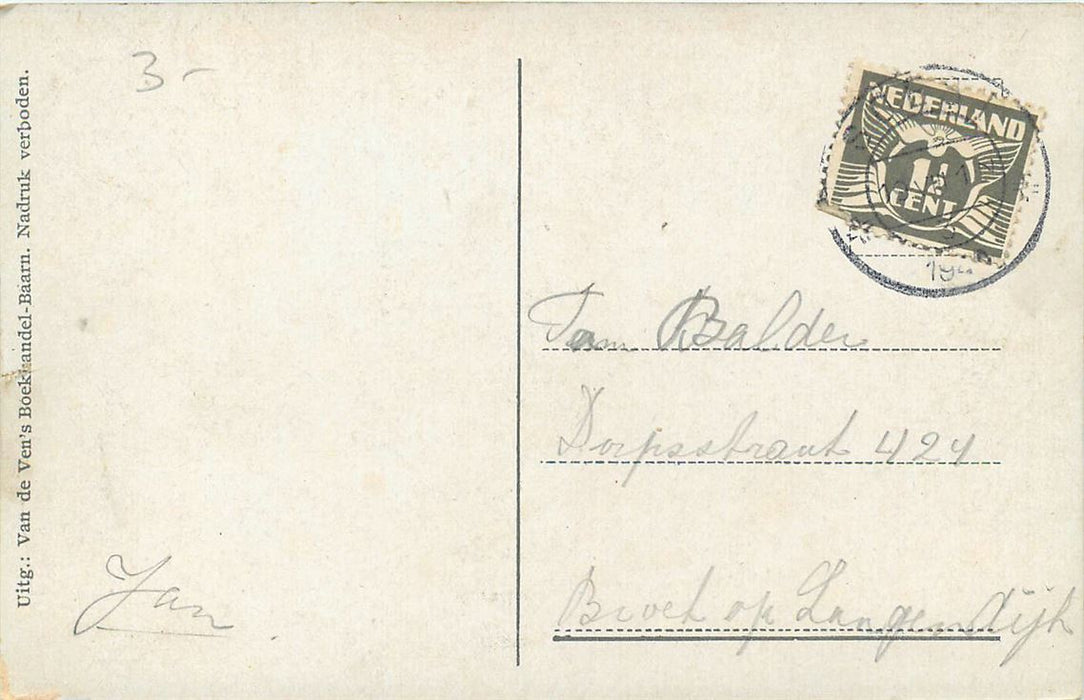 3-
Uitg.: Van de Ven's Boekhandel-Baarn. Nadruk verboden.
NEDERLAND
1½
CENT
194
Balder
Dorpsstraat 424
Broek op Langendijk
Jan